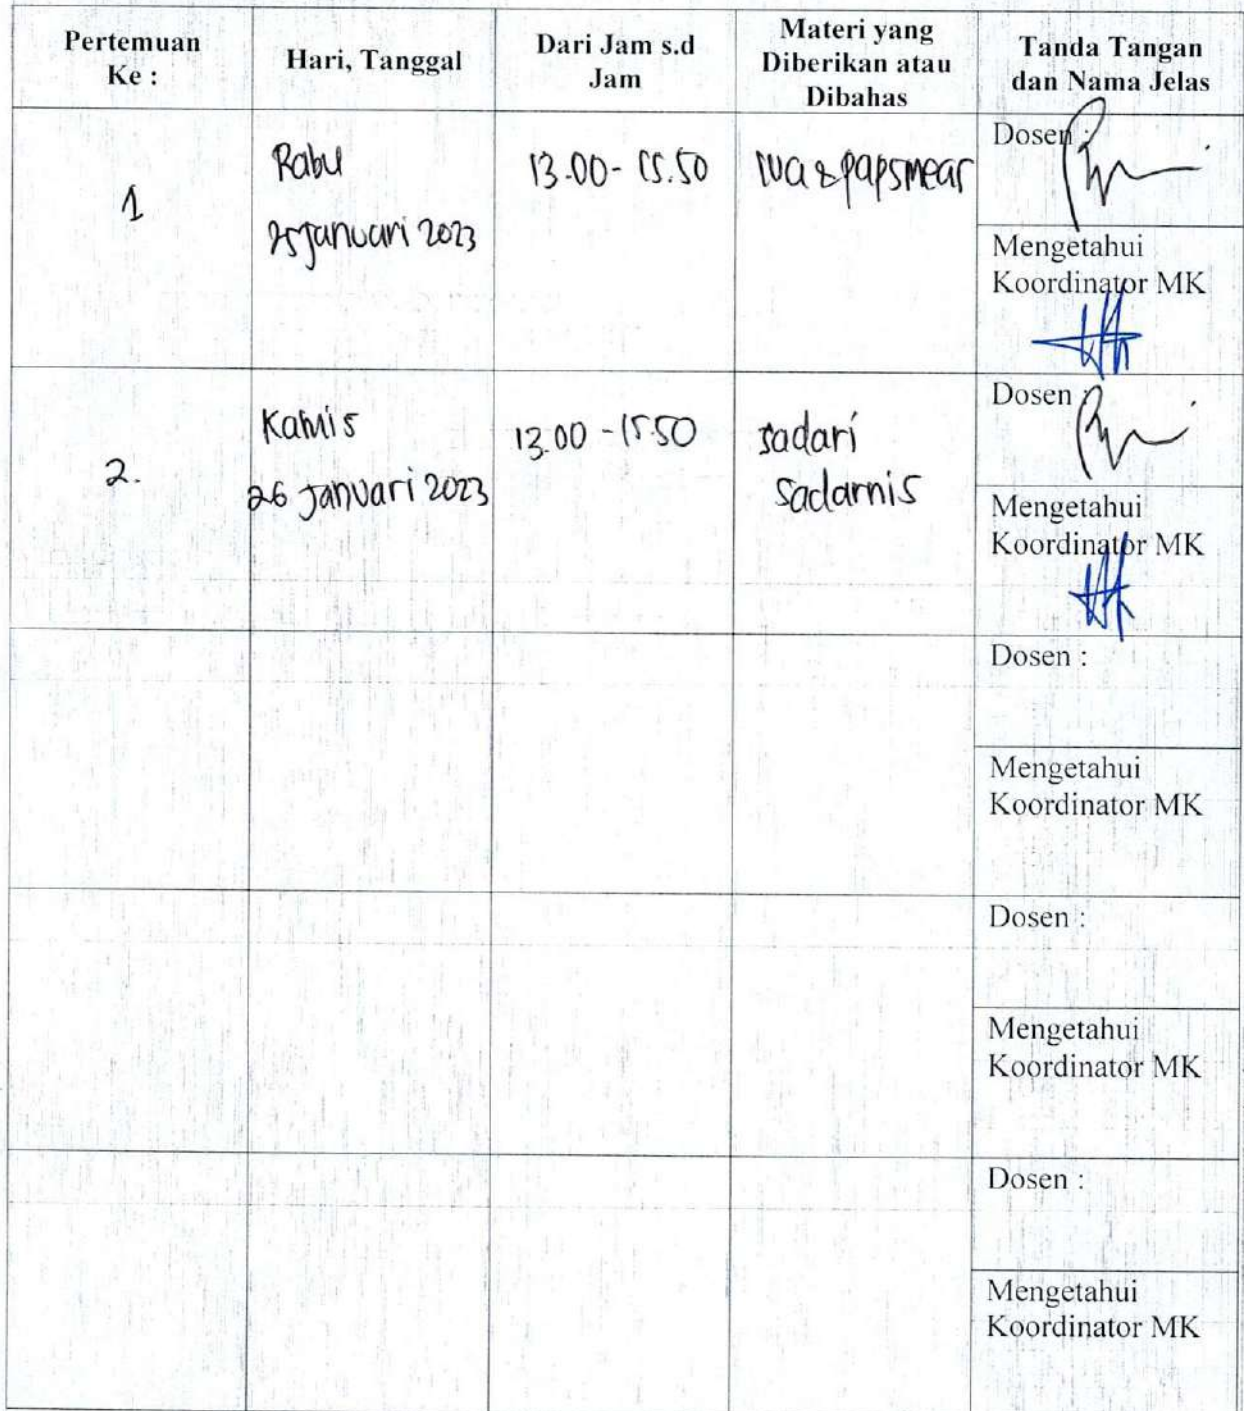 Pertemuan
Ke :
Hari, Tanggal
Dari Jam s.d
Jam
Materi yang
Diberikan atau
Dibahas
Tanda Tangan
dan Nama Jelas
1
Rabu
25 Januari 2023
13.00 - 15.50
iva & papsmear
Dosen :
Mengetahui
Koordinator MK
2.
Kamis
26 Januari 2023
13.00 - 15.50
sadari
sadarnis
Dosen :
Mengetahui
Koordinator MK
Dosen :
Mengetahui
Koordinator MK
Dosen :
Mengetahui
Koordinator MK
Dosen :
Mengetahui
Koordinator MK